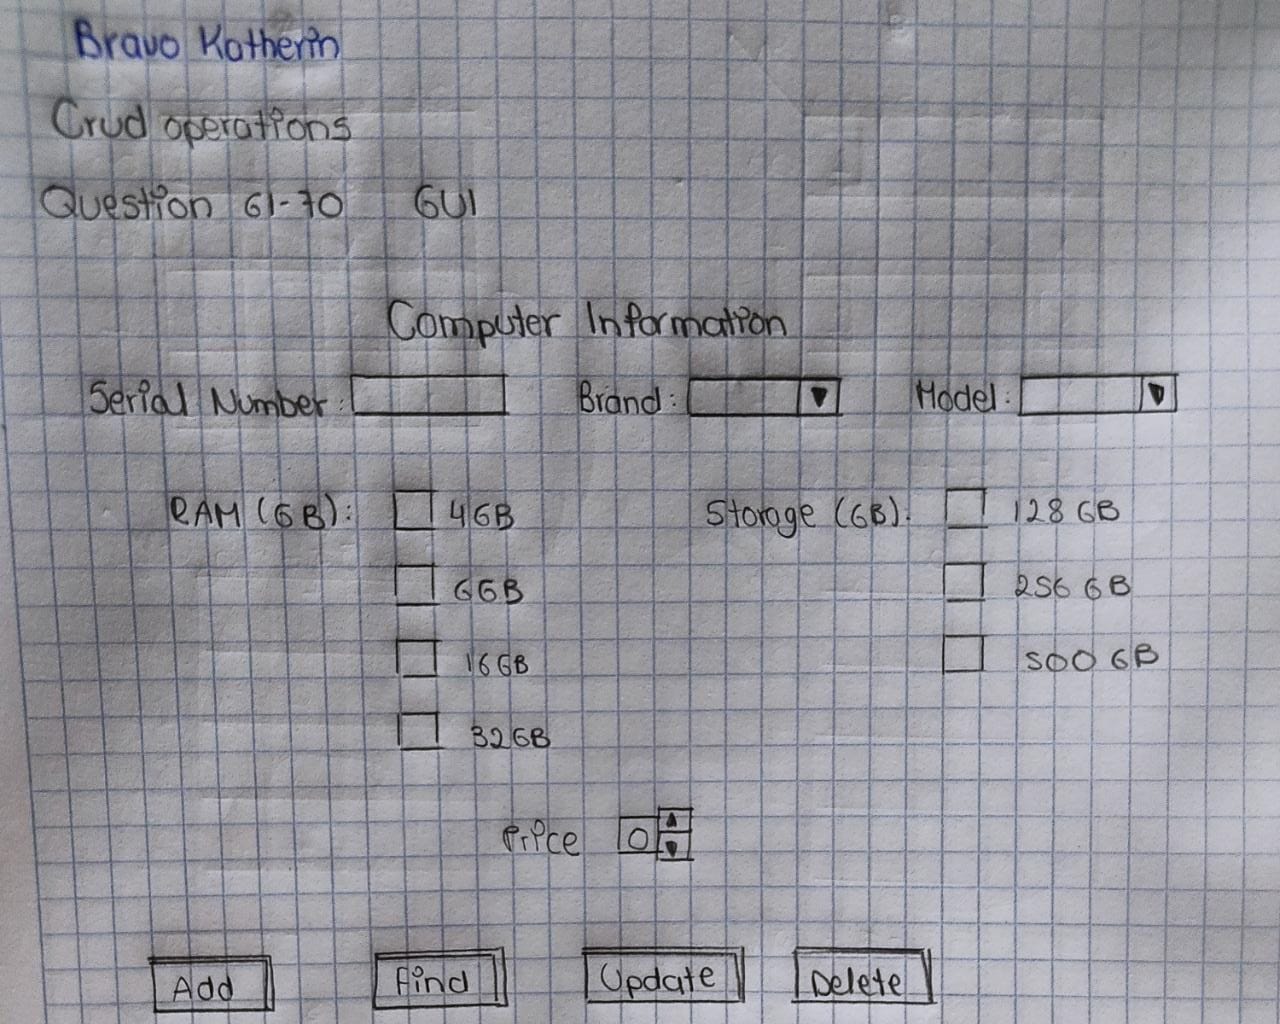 Bravo Katherin
Crud operations
Question 61-70 GUI
Computer Information
Serial Number: Brand: Model:
RAM (GB): 4GB Storage (GB): 128 GB
6GB 256 GB
16GB 500 GB
32GB
Price 0
Add Find Update Delete